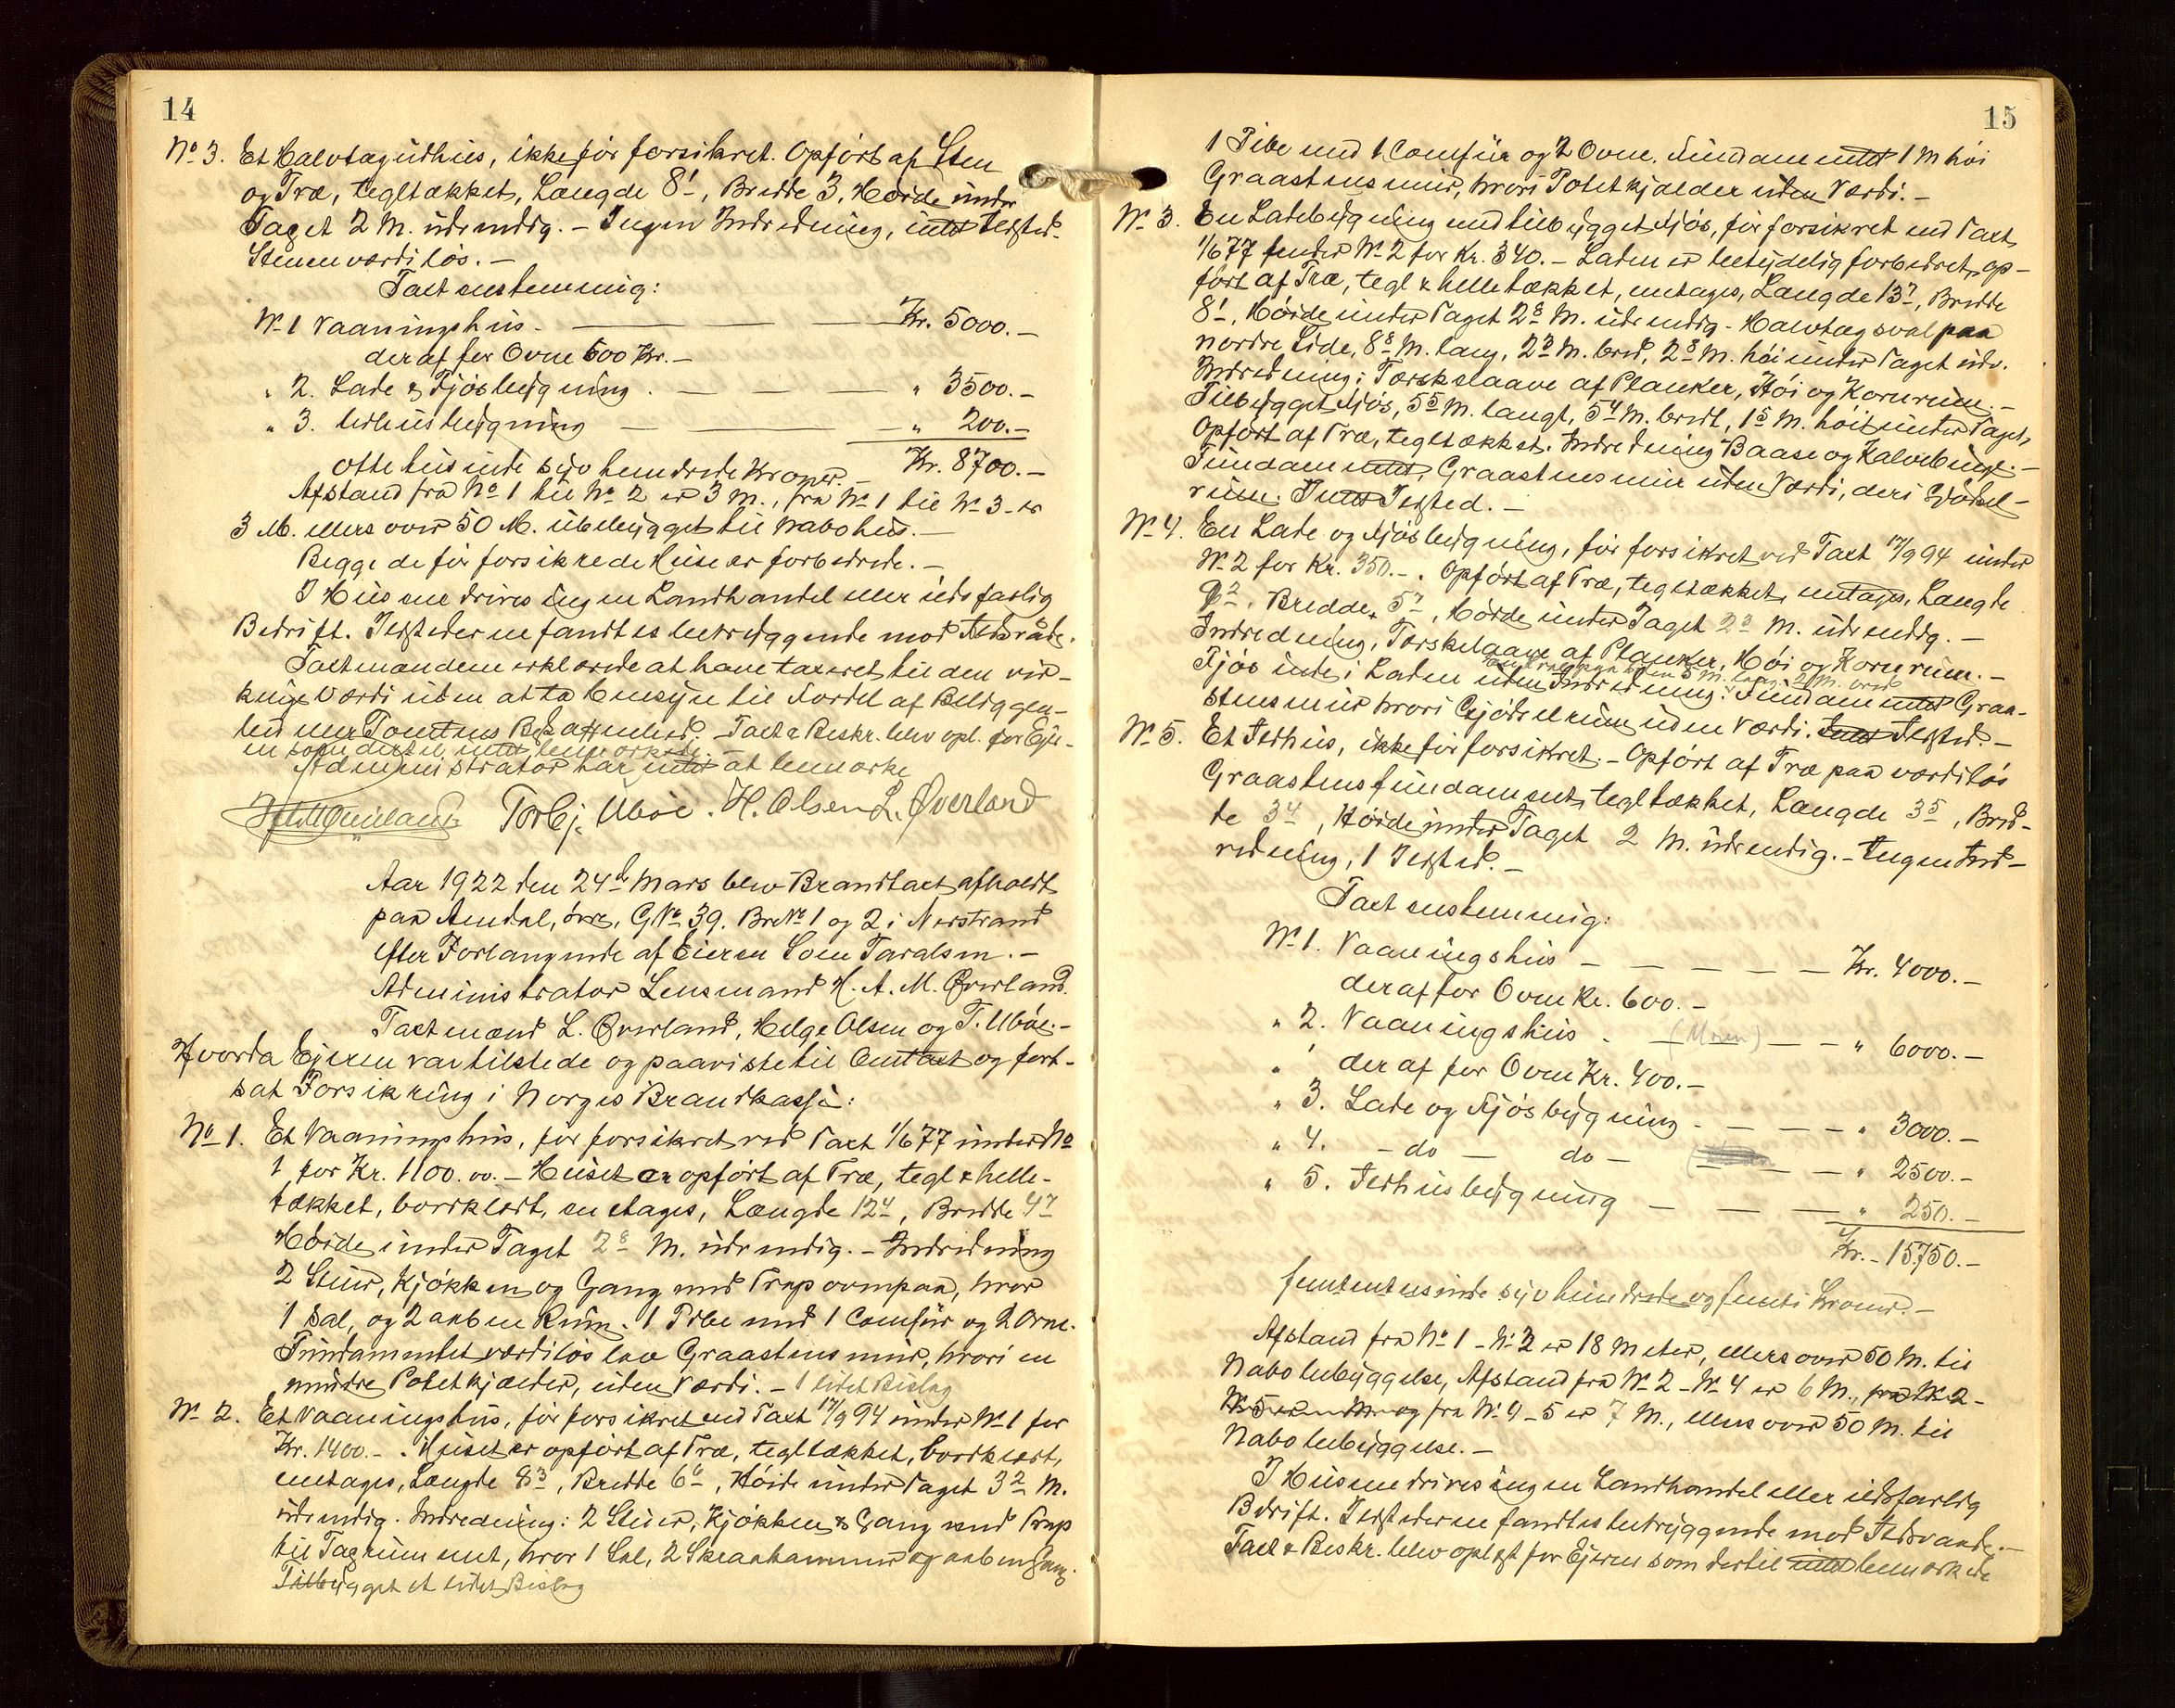 14
No 3. Et Halvtagudhus, ikke før forsikret. Opført af Sten
og Træ, tegltækket, Længde 8¹, Bredde 3, Høide under
Taget 2 M. udvendig. – Ingen Indredning, intet Ildsted.
Stenen værdiløs. –
Taxt ansættelse:
No 1 Vaaningshus – Kr. 5000.–
deraf for Ovne 600 Kr. –
" 2. Lade & Fjøsbygning – " 3500.–
" 3. Udhusbygning – " 200.–
otte tusinde syv hundrede Kroner – Kr. 8700.–
Afstand fra No 1 til No 2 er 3 M., fra No 1 til No 3 – er
3 M. ellers over 50 M. ubebygget til Nabohus. –
Begge de før forsikrede Huse er forbedrede. –
I Husene drives ingen Landhandel eller ildsfarlig
Bedrift. Ildstederne fandtes betryggende mod Ildsvåde.
Taxtmændene erklærede at have taxeret til den vir-
kelige Værdi uden at ta Hensyn til Fordel af Beliggen-
hed eller Tomtens Beskaffenhed. – Taxt & Beskr. blev opl. for Eje-
en som dertil intet bemærkede.
Administrator har intet at bemærke
Torbj. Ubøe. H. Olsen L. Øverland
Aar 1922 den 24de Mars blev Brandtaxt afholdt
paa Amdal, övre, GNo 39. BrNo 1 og 2 i Nerstrand
efter Forlangende af Eieren Soen Taralsen. –
Administrator Lensmand H. A. M. Øverland.
Taxtmænd L. Øverland, Helge Olsen og T. Ubøe. –
Hvorda Ejeren var tilstede og paaviste til Omtaxt og fort-
sat Forsikring i Norges Brandkasse:
No 1. Et Vaaningshus, før forsikret ved Taxt 1/6 77 under No
1 for Kr. 1100.00. – Huset er opført af Træ, tegl & helle-
tækket, bordklædt, en etages, Længde 12⁴, Bredde 4⁷
Høide under Taget 2⁸ M. udvendig. – Indredning
2 Stuer, Kjøkken og Gang med Trap ovenpaa, hvor
1 Sal, og 2 aabne Rum. 1 Pibe med 1 Comfür og 2 Ovne.
Fundamentet værdiløs lav Graastensmur, hvori en
mindre Potetkjælder, uden Værdi. – 1 lidet Bislag
No 2. Et Vaaningshus, før forsikret ved Taxt 17/9 94 under No 1 for
Kr. 1400. – . Huset er opført af Træ, tegltækket, bordklædt,
enetages, Længde 8³, Bredde 6⁶, Høide under Taget 3² M.
udvendig. Indredning: 2 Stuer, Kjøkken & Gang med Trap
til Tagrummet, hvor 1 Sal, 2 Skraakammer og aaben Gang.
Tilbygget et lidet Bislag
15
1 Pibe med 1 Comfür og 2 Ovne. Fundamentet 1 M høi
Graastensmur, hvori Potetkjælder uden Værdi. –
No 3. En Ladebygning med tilbygget Fjøs, før forsikret ved Taxt
1/6 77 under No 2 for Kr. 340. – Laden er betydelig forbedret, op-
ført af Træ, tegl & helletækket, enetages, Længde 13⁷, Bredde
8¹, Høide under Taget 2⁸ M. udvendig. Halvtagsval paa
nordre Side, 8⁸ M. lang, 2³ M. bred, 2³ M. høi under Taget udv.
Indredning: Tærskelaave af Planker, Høi og Kornrum. –
Tilbygget Fjøs, 5⁵ M. langt, 5⁴ M. bredt, 1⁵ M. høit under Taget,
Opført af Træ, tegltækket. Indredning Baase og Kalvebinge. –
Fundamentet, Graastensmur uden Værdi, deri Gjødsel-
rum. Intet Ildsted. –
No 4. En Lade og Fjøsbygning, før forsikret ved Taxt 17/9 94 under
No 2 for Kr. 350. – . Opført af Træ, tegltækket, enetages, Længde
9², Bredde 5⁷, Høide under Taget 2³ M. udvendig. –
Indredning, Tærskelaave af Planker, Høi og Kornrum. –
5 M. lang, 2 M. bred
Fjøs inde i Laden uden Indredning. Fundamentet Graa-
stensmur hvori Gjødselrum uden Værdi. Intet Ildsted. –
No 5. Et Ildhus, ikke før forsikret. – Opført af Træ paa værdiløs
Graastensfundament, tegltækket, Længde 3⁵, Bred-
de 3⁴, Høide under Taget 2 M. udvendig. – Ingen Ind-
redning, 1 Ildsted. –
Taxt ansættelse:
No 1. Vaaningshus – Kr. 4000.–
deraf for Ovne Kr. 600. –
" 2. Vaaningshus – " 6000.–
" deraf for Ovne Kr. 400. –
" 3. Lade og Fjøsbygning – " 3000.–
" 4. – do – do – " 2500.–
" 5. Ildhusbygning – " 250.–
Kr. – 15750.–
femtentusinde syv hundrede og femti Kroner. –
Afstand fra No 1 – No 2 er 18 Meter, ellers over 50 M. til
Nabobebyggelse, Afstand fra No 2 – No 4 er 6 M., fra No 2 –
No 5 og fra No 4 – 5 er 7 M., ellers over 50 M. til
Nabobebyggelse. –
I Husene drives ingen Landhandel eller ildsfarlig
Bedrift. Ildstederne fandtes betryggende mod Ildsvaade. –
Taxt & Beskr. blev oplæst for Ejeren som dertil intet bemærkede